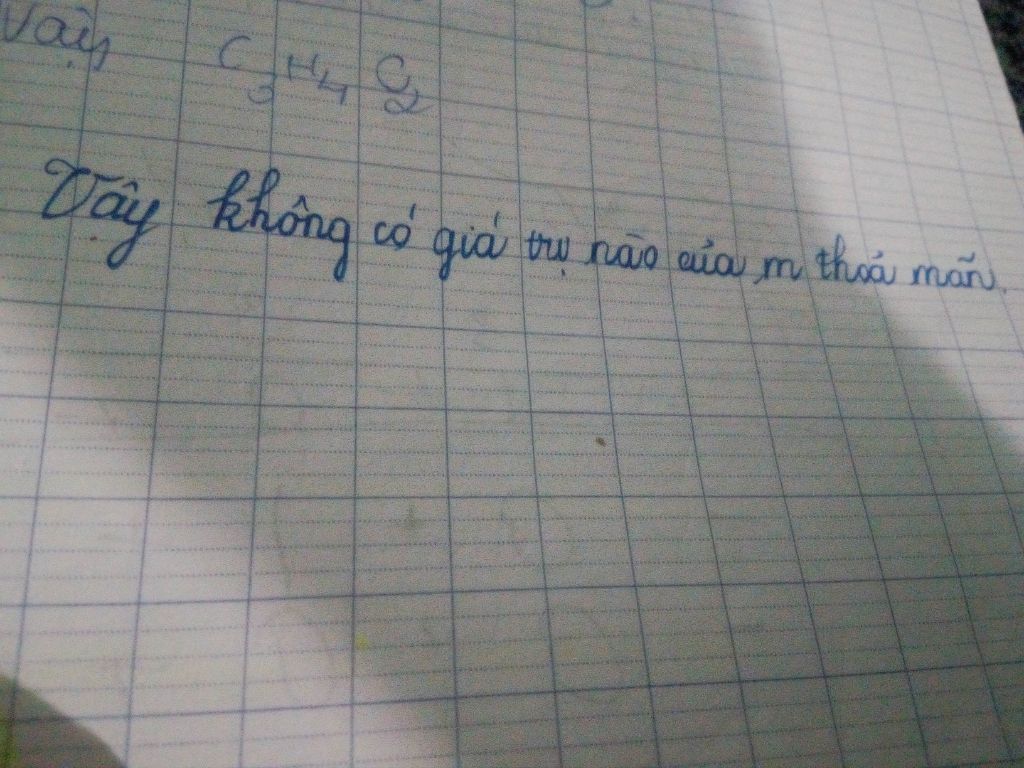 Vậy C3H4O2
Vậy không có giá trị nào của m thoả mãn.